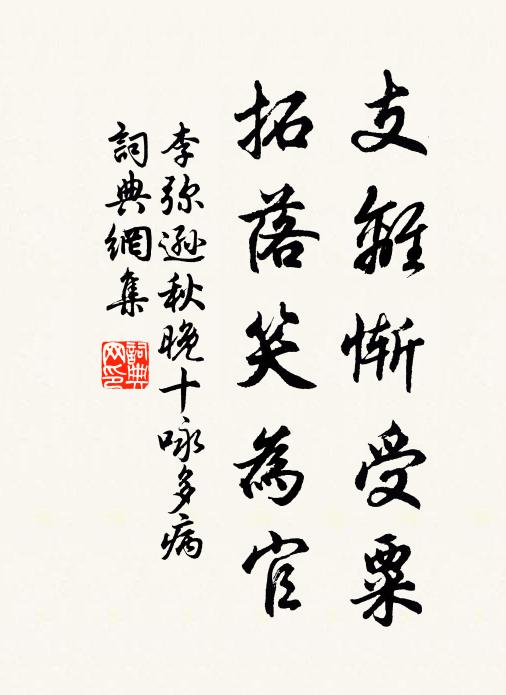 支離慚受粟
拓落笑為官
李弥遜秋晚十詠多病
詞典網集
詞典
网印